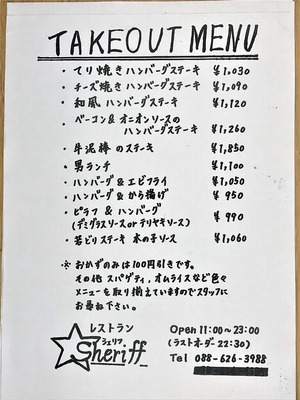 TAKEOUT MENU
・てり焼きハンバーグステーキ ¥1,030
・チーズ焼きハンバーグステーキ ¥1,090
・和風ハンバーグステーキ ¥1,120
・ベーコン&オニオンソースの
ハンバーグステーキ ¥1,260
・牛泥棒のステーキ ¥1,850
・男ランチ ¥1,100
・ハンバーグ&エビフライ ¥1,050
・ハンバーグ&から揚げ ¥950
・ピラフ&ハンバーグ ¥990
(デミグラスソースorテリヤキソース)
・若どりステーキ 木の子ソース ¥1,060
※おかずのみは100円引きです。
その他スパゲティ,オムライスなど色々
メニューを取り揃えていますのでスタッフに
お尋ね下さい。
レストラン
シェリフ
Sheriff
Open 11:00~23:00
(ラストオーダー22:30)
Tel 088-626-3988